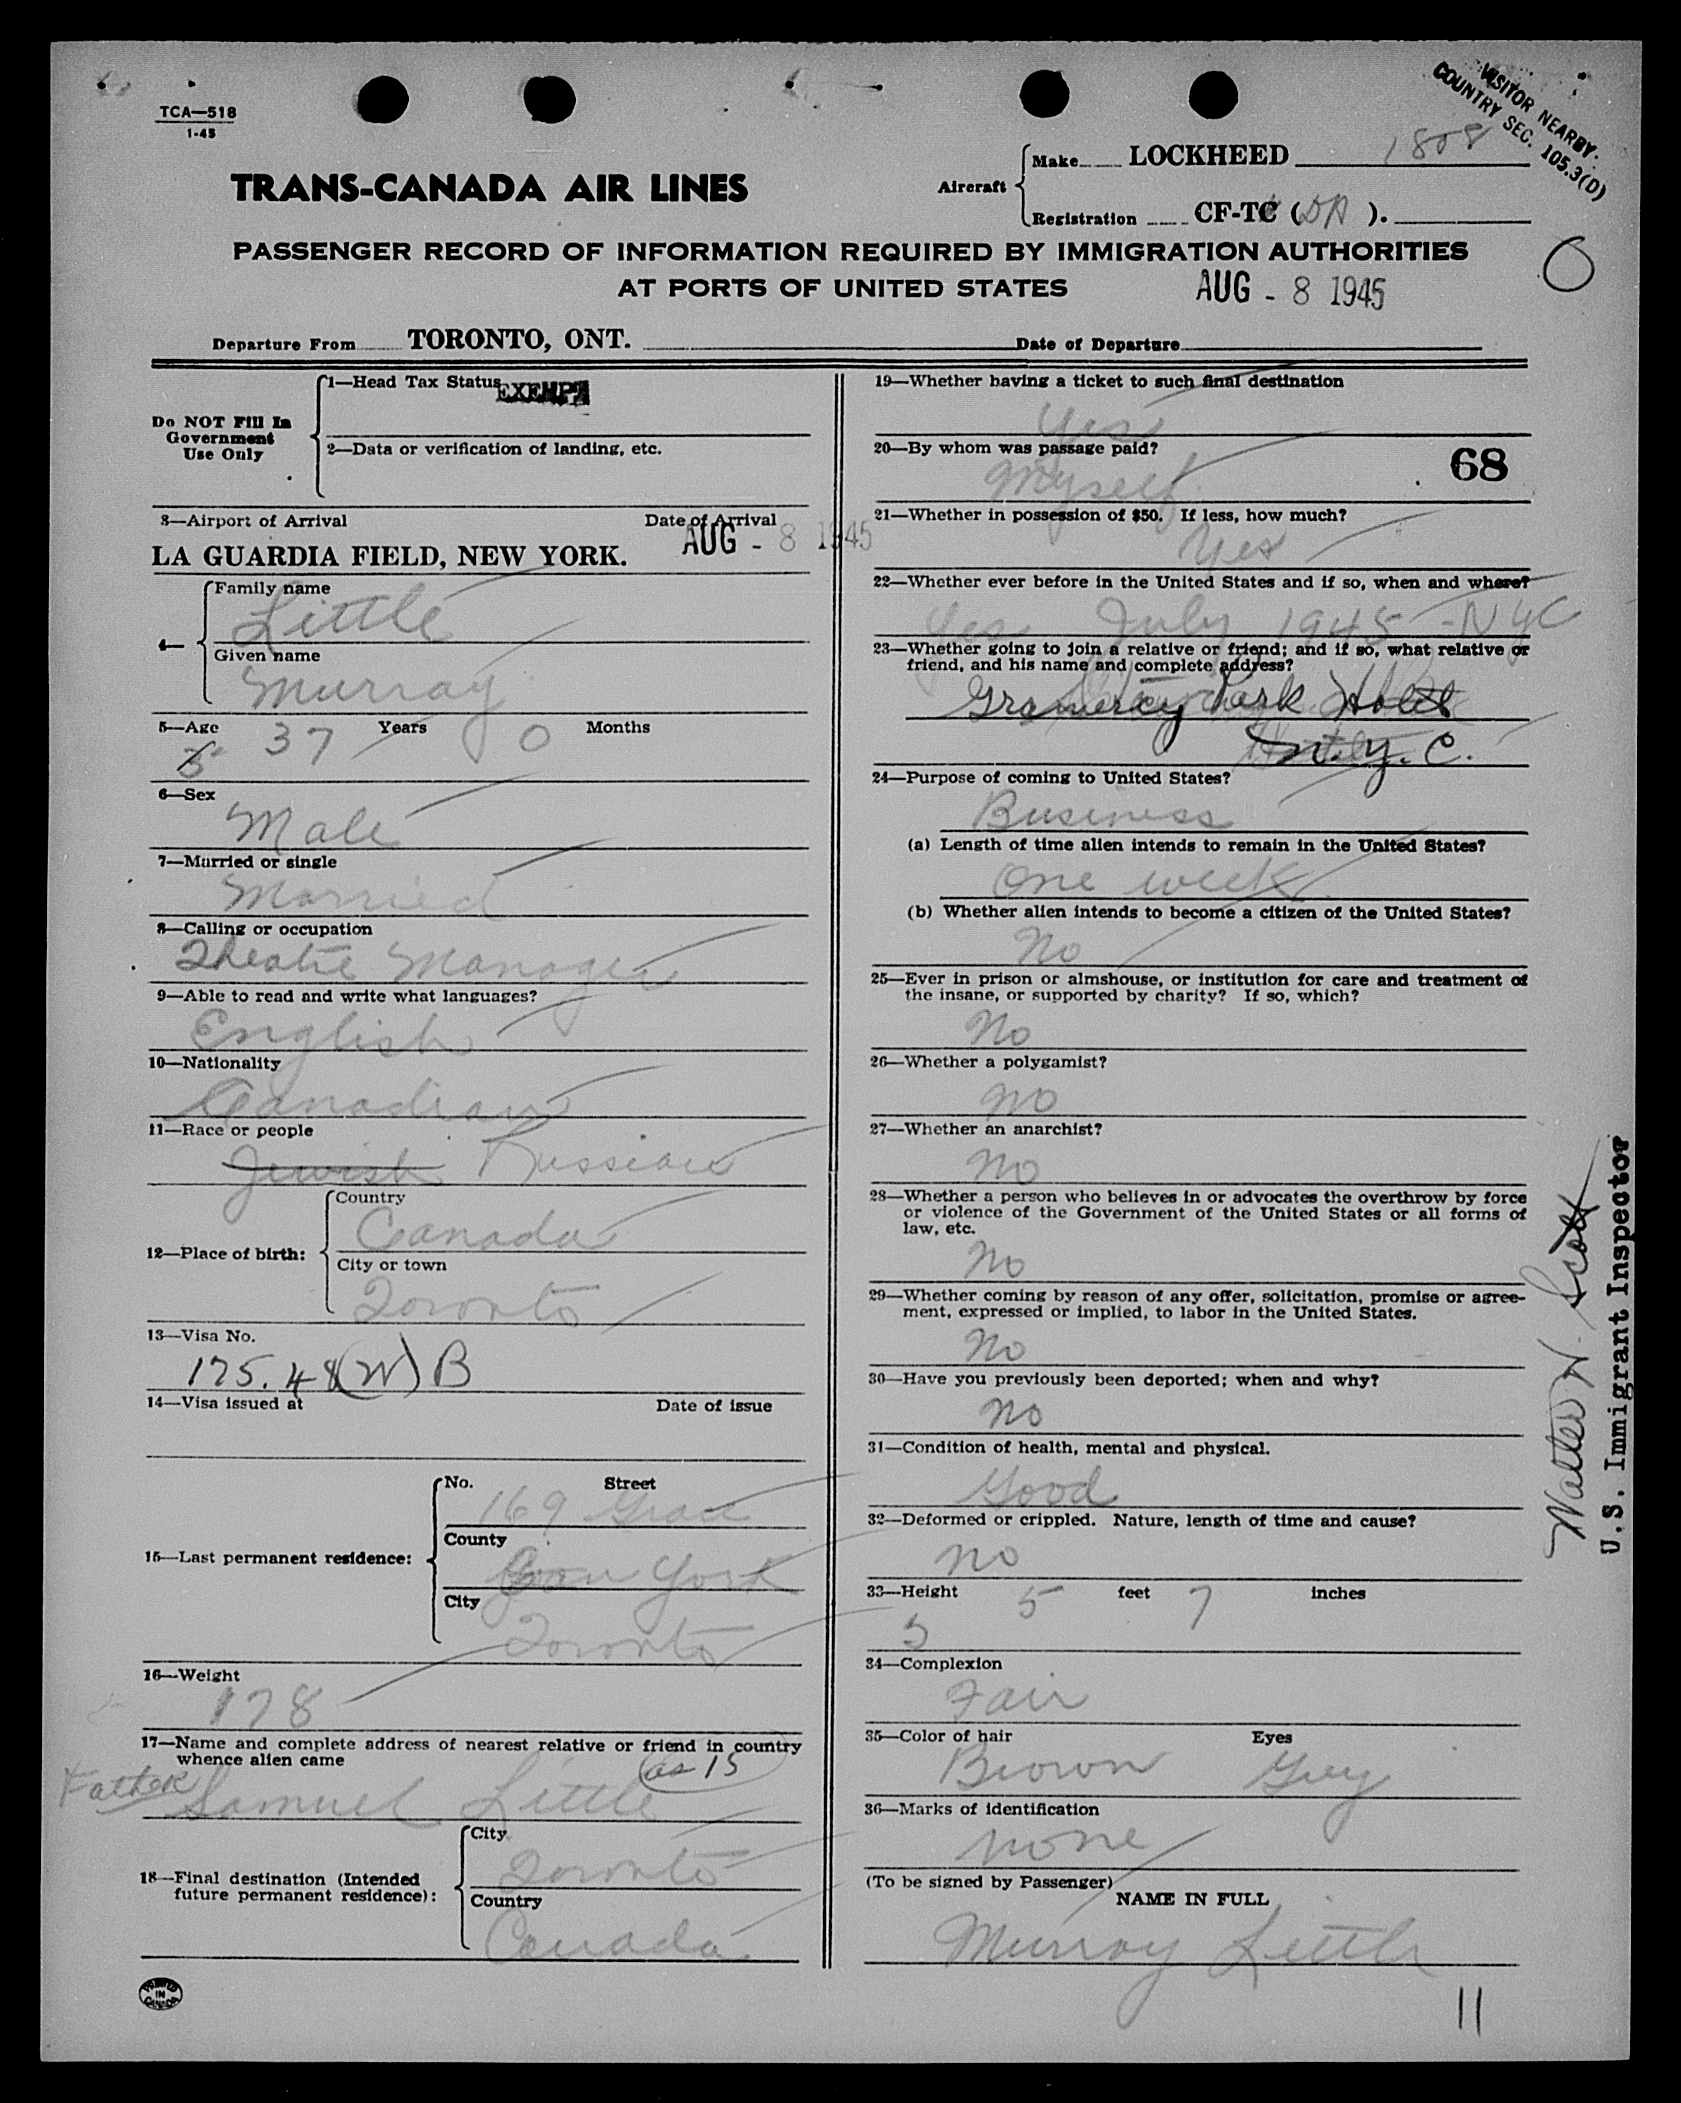 TCA—518
1-45
VISITOR NEARBY
COUNTRY SEC. 105.3(D)
TRANS-CANADA AIR LINES
Aircraft
Make LOCKHEED 1808
Registration CF-TC (DA).
PASSENGER RECORD OF INFORMATION REQUIRED BY IMMIGRATION AUTHORITIES
AT PORTS OF UNITED STATES
AUG - 8 1945
Departure From TORONTO, ONT. Date of Departure
Do NOT Fill In
Government
Use Only
1—Head Tax Status EXEMPT
2—Data or verification of landing, etc.
3—Airport of Arrival Date of Arrival
LA GUARDIA FIELD, NEW YORK. AUG - 8 1945
4—
Family name
Little
Given name
Murray
5—Age 37 Years 0 Months
6—Sex
Male
7—Married or single
Married
8—Calling or occupation
Theatre Manager
9—Able to read and write what languages?
English
10—Nationality
Canadian
11—Race or people
Jewish Russian
12—Place of birth:
Country
Canada
City or town
Toronto
13—Visa No.
175.48(W)B
14—Visa issued at Date of issue
15—Last permanent residence:
No. Street
169 Grace
County
York
City
Toronto
16—Weight
178
17—Name and complete address of nearest relative or friend in country
whence alien came
as 15
Father Samuel Little
18—Final destination (Intended
future permanent residence):
City
Toronto
Country
Canada
PRINTED
IN
CANADA
19—Whether having a ticket to such final destination
Yes
20—By whom was passage paid?
Myself
68
21—Whether in possession of $50. If less, how much?
Yes
22—Whether ever before in the United States and if so, when and where?
Yes July 1945 - NYC
23—Whether going to join a relative or friend; and if so, what relative or
friend, and his name and complete address?
Gramercy Park Hotel
N.Y.C.
24—Purpose of coming to United States?
Business
(a) Length of time alien intends to remain in the United States?
One week
(b) Whether alien intends to become a citizen of the United States?
No
25—Ever in prison or almshouse, or institution for care and treatment of
the insane, or supported by charity? If so, which?
No
26—Whether a polygamist?
No
27—Whether an anarchist?
No
28—Whether a person who believes in or advocates the overthrow by force
or violence of the Government of the United States or all forms of
law, etc.
No
29—Whether coming by reason of any offer, solicitation, promise or agree-
ment, expressed or implied, to labor in the United States.
No
30—Have you previously been deported; when and why?
No
31—Condition of health, mental and physical.
Good
32—Deformed or crippled. Nature, length of time and cause?
No
33—Height 5 feet 7 inches
34—Complexion
Fair
35—Color of hair Eyes
Brown Grey
36—Marks of identification
None
(To be signed by Passenger)
NAME IN FULL
Murray Little
11
Walter N. Scott
U.S. Immigrant Inspector